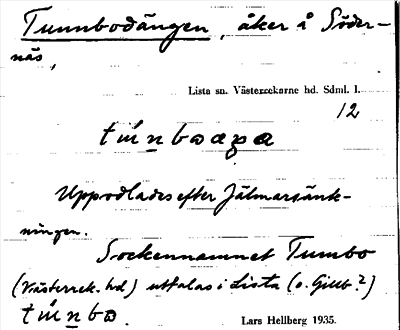 Tumbodängen, åker å Söder-
näs,
Lista sn. Västerrekarne hd. Sdml. l.
12
Uppodlades efter Jälmarsänk-
ningen.
Sockennamnet Tumbo
(Västerrek. hd) uttalas i Lista (o. Gillb?)
Lars Hellberg 1935.